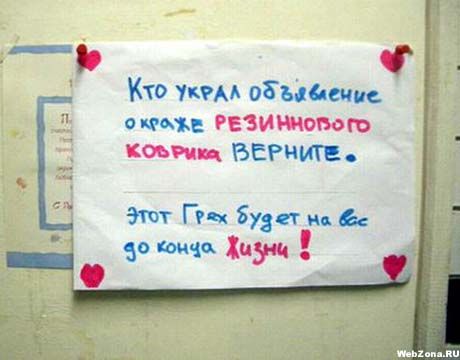 Кто украл объявление
о краже РЕЗИННОВОГО
КОВРИКА ВЕРНИТЕ.
Этот Грех будет на вас
до конца Жизни!
WebZona.RU